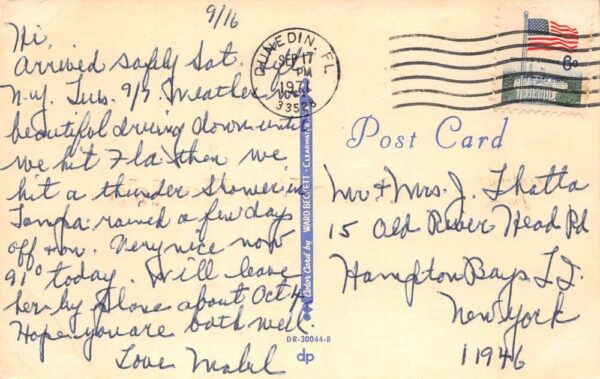 9/16
Hi,
Arrived safely Sat. left
N.Y. Tues. 9/7. Weather
beautiful driving down until
we hit Fla. then we
hit a thunder shower in
Tampa. rained a few days
off + on. Very nice now
91° today. Will leave
here by plane about Oct 4.
Hope you are both well.
Love Mabel
DUNEDIN, FL
SEP 17
PM
1971
33528
6¢
Post Card
Mr + Mrs. J. Thatta
15 Old River Head Rd
Hampton Bays L.I.
New York
11946
Color Card by WARD BECKETT - CLEARWATER
DR-30044-B
dp